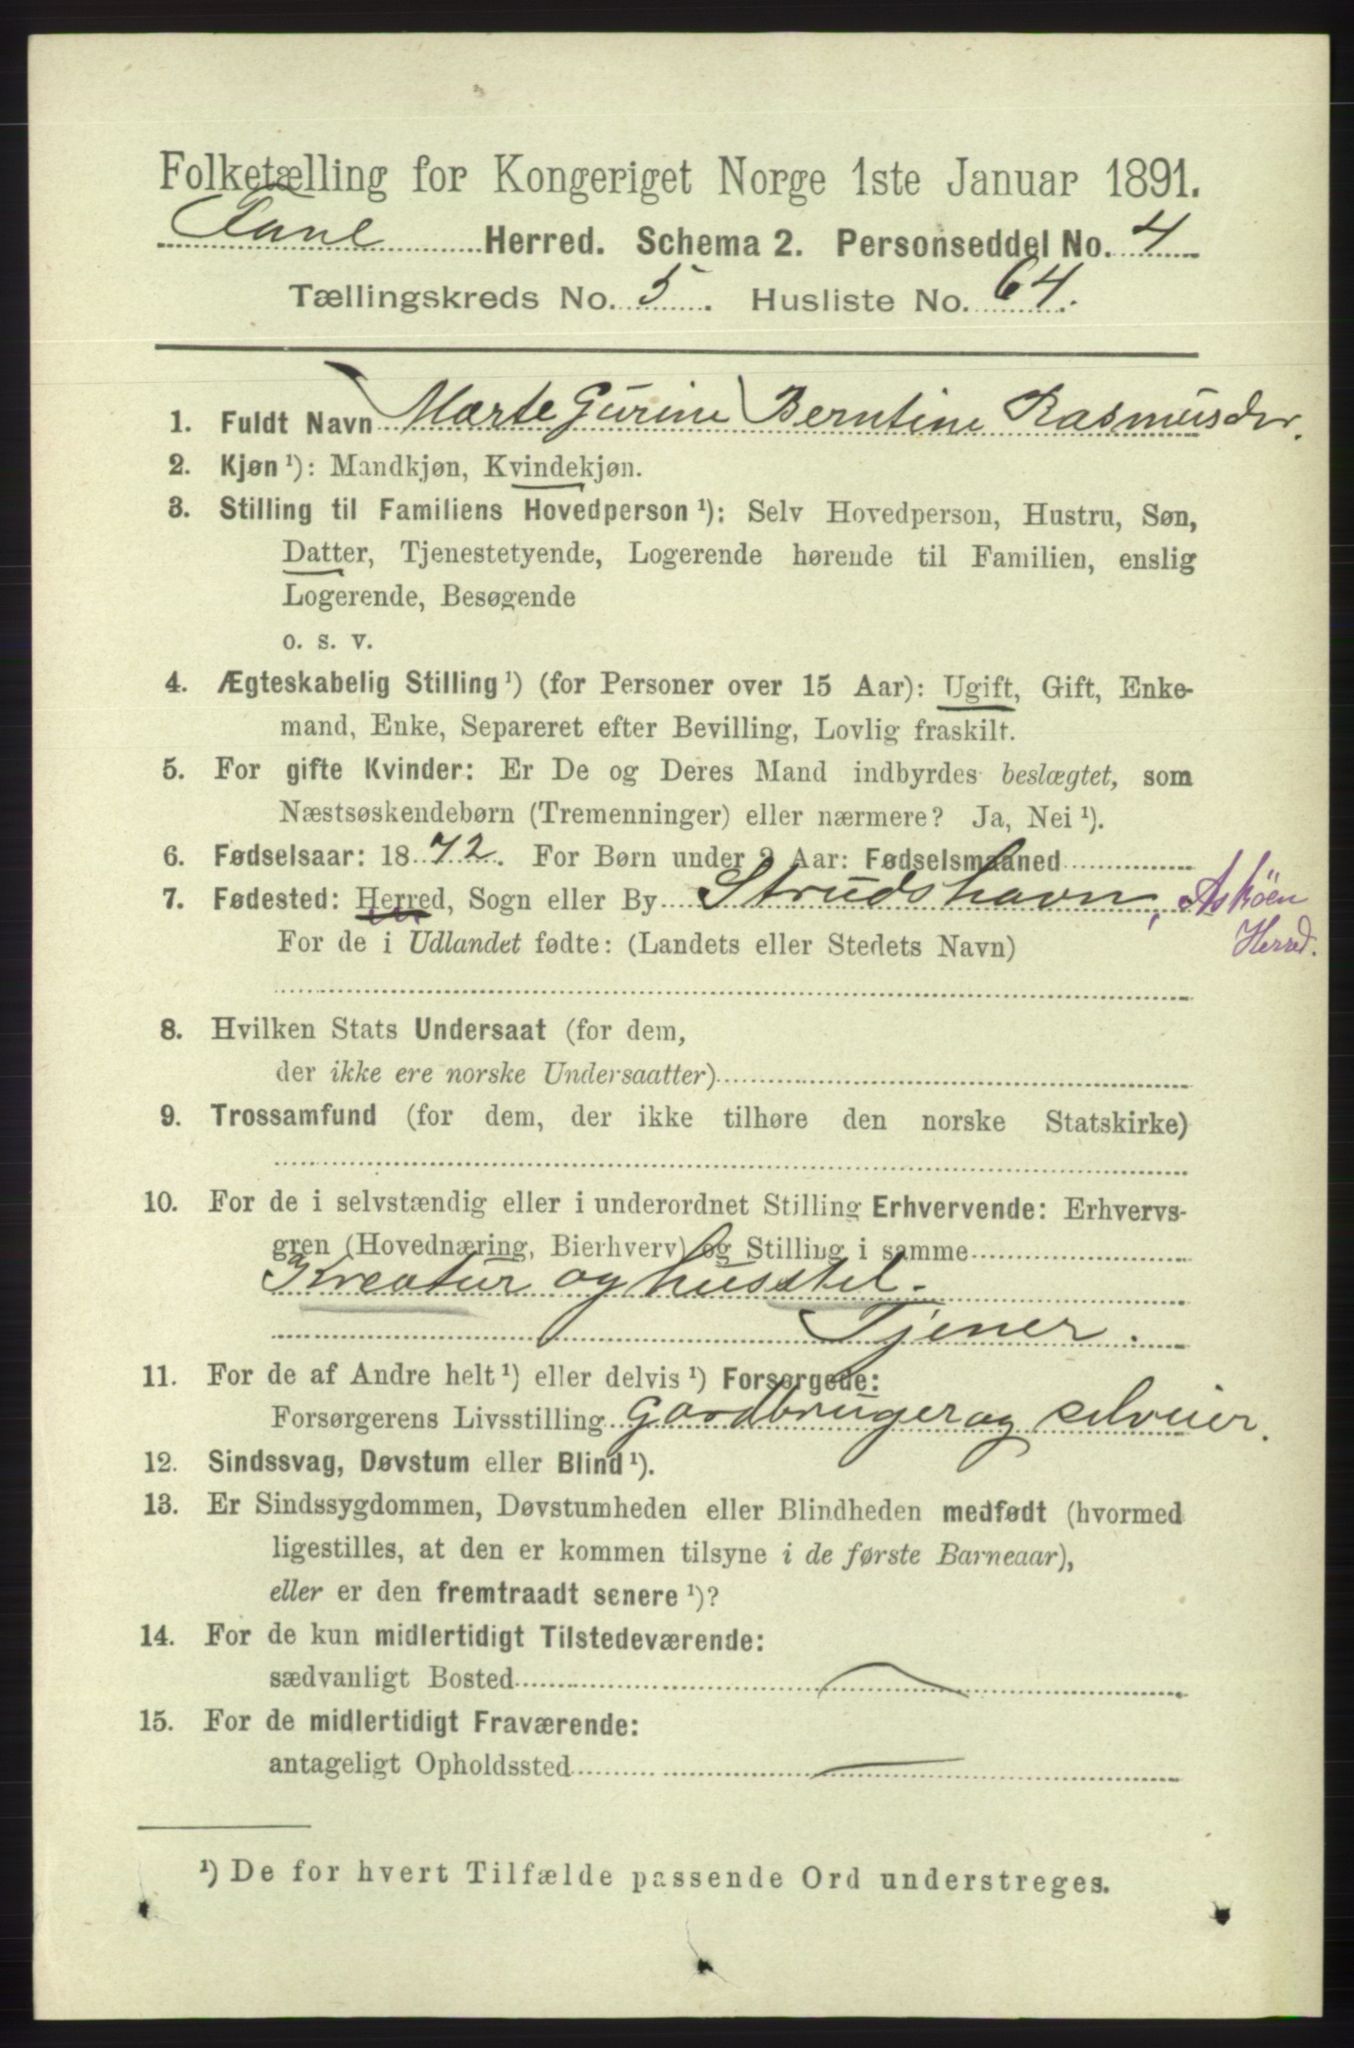 Folketælling for Kongeriget Norge 1ste Januar 1891.
Fane Herred. Schema 2. Personseddel No. 4
Tællingskreds No. 5. Husliste No. 64.
1. Fuldt Navn Marte Gurine Berntine Rasmusdtr.
2. Kjøn ¹): Mandkjøn, Kvindekjøn.
3. Stilling til Familiens Hovedperson ¹): Selv Hovedperson, Hustru, Søn,
Datter, Tjenestetyende, Logerende hørende til Familien, enslig
Logerende, Besøgende
o. s. v.
4. Ægteskabelig Stilling ¹) (for Personer over 15 Aar): Ugift, Gift, Enke-
mand, Enke, Separeret efter Bevilling, Lovlig fraskilt.
5. For gifte Kvinder: Er De og Deres Mand indbyrdes beslægtet, som
Næstsøskendebørn (Tremenninger) eller nærmere? Ja, Nei ¹).
6. Fødselsaar: 1872. For Børn under 2 Aar: Fødselsmaaned
7. Fødested: Herred, Sogn eller By Strudshavn, Asköen
Herred.
For de i Udlandet fødte: (Landets eller Stedets Navn)
8. Hvilken Stats Undersaat (for dem,
der ikke ere norske Undersaatter)
9. Trossamfund (for dem, der ikke tilhøre den norske Statskirke)
10. For de i selvstændig eller i underordnet Stilling Erhvervende: Erhvervs-
gren (Hovednæring, Bierhverv) og Stilling i samme
Kreatur og husstel.
Tjener.
11. For de af Andre helt ¹) eller delvis ¹) Forsørgede:
Forsørgerens Livsstilling Gardbruger og selveier.
12. Sindssvag, Døvstum eller Blind ¹).
13. Er Sindssygdommen, Døvstumheden eller Blindheden medfødt (hvormed
ligestilles, at den er kommen tilsyne i de første Barneaar),
eller er den fremtraadt senere ¹)?
14. For de kun midlertidigt Tilstedeværende:
sædvanligt Bosted
15. For de midlertidigt Fraværende:
antageligt Opholdssted
¹) De for hvert Tilfælde passende Ord understreges.